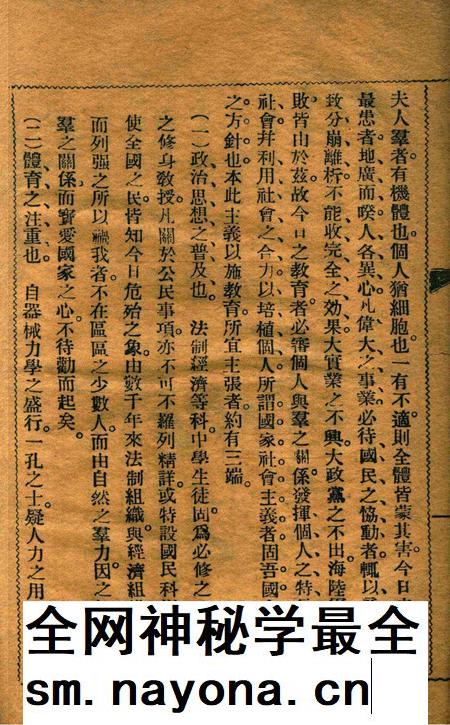 夫人羣者有機體也個人猶細胞也一有不適則全體皆蒙其害今日
最患者地廣而睽人各異心凡偉大之事業必待國民之恊動者輒以
致分崩離析不能收完全之効果大實業之不興大政黨之不出海陸
敗皆由於茲故今日之教育者必審個人與羣之關係發揮個人之特
社會幷利用社會之合力以培植個人所謂國家社會主義者固吾國
之方針也本此主義以施教育所宜主張者約有三端
(一)政治思想之普及也 法制經濟等科中學生徒固爲必修之
之修身教授凡關於公民事項亦不可不羅列精詳或特設國民科
使全國之民皆知今日危殆之象由數千年來法制組織與經濟組
而列强之所以謀我者不在區區之少數人而由自然之羣力因之
羣之關係而寳愛國家之心不待勸而起矣
(二)體育之注重也 自器械力學之盛行一孔之士疑人力之用
全网神秘学最全
sm.nayona.cn